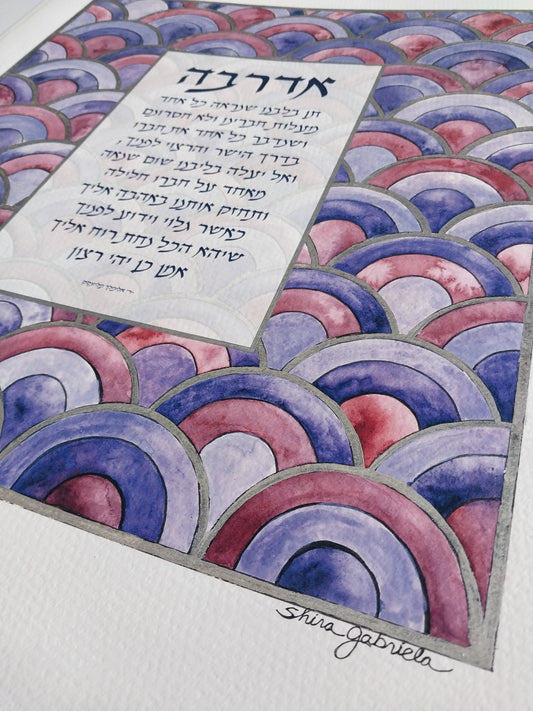 אדרבה
תן בלבנו שנראה כל אחד
מעלות חברינו ולא חסרונם
ושנדבר כל אחד את חברו
בדרך הישר והרצוי לפניך,
ואל יעלה בליבנו שום שנאה
מאחד על חברו חלילה
ותחזק אותנו באהבה אליך
כאשר גלוי וידוע לפניך
שיהא הכל נחת רוח אליך
אמן כן יהי רצון
Shira Gabriela